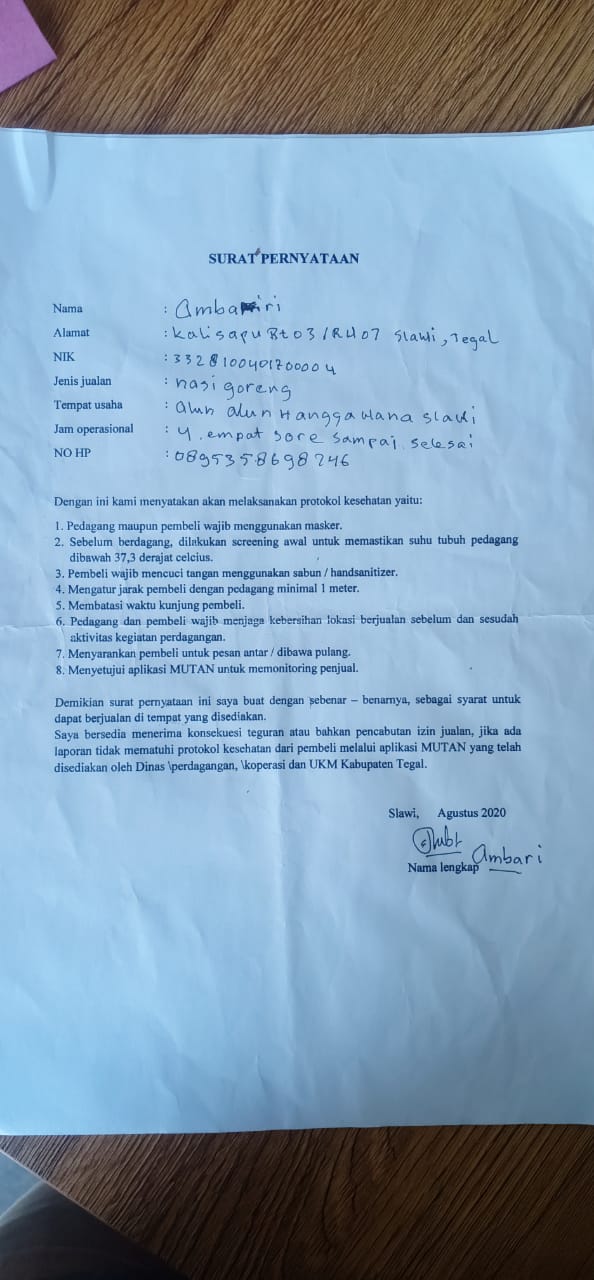 SURAT PERNYATAAN
Nama : Ambariri
Alamat : Kalisapu Rt 03 / RW 07 Slawi, Tegal
NIK : 3328100401700004
Jenis jualan : nasi goreng
Tempat usaha : alun alun Hanggawana Slawi
Jam operasional : 4. empat sore sampai selesai
NO HP : 0895358698246
Dengan ini kami menyatakan akan melaksanakan protokol kesehatan yaitu:
1. Pedagang maupun pembeli wajib menggunakan masker.
2. Sebelum berdagang, dilakukan screening awal untuk memastikan suhu tubuh pedagang
dibawah 37,3 derajat celcius.
3. Pembeli wajib mencuci tangan menggunakan sabun / handsanitizer.
4. Mengatur jarak pembeli dengan pedagang minimal 1 meter.
5. Membatasi waktu kunjung pembeli.
6. Pedagang dan pembeli wajib menjaga kebersihan lokasi berjualan sebelum dan sesudah
aktivitas kegiatan perdagangan.
7. Menyarankan pembeli untuk pesan antar / dibawa pulang.
8. Menyetujui aplikasi MUTAN untuk memonitoring penjual.
Demikian surat pernyataan ini saya buat dengan sebenar – benarnya, sebagai syarat untuk
dapat berjualan di tempat yang disediakan.
Saya bersedia menerima konsekuesi teguran atau bahkan pencabutan izin jualan, jika ada
laporan tidak mematuhi protokol kesehatan dari pembeli melalui aplikasi MUTAN yang telah
disediakan oleh Dinas \perdagangan, \koperasi dan UKM Kabupaten Tegal.
Slawi, Agustus 2020
Ambari
Nama lengkap